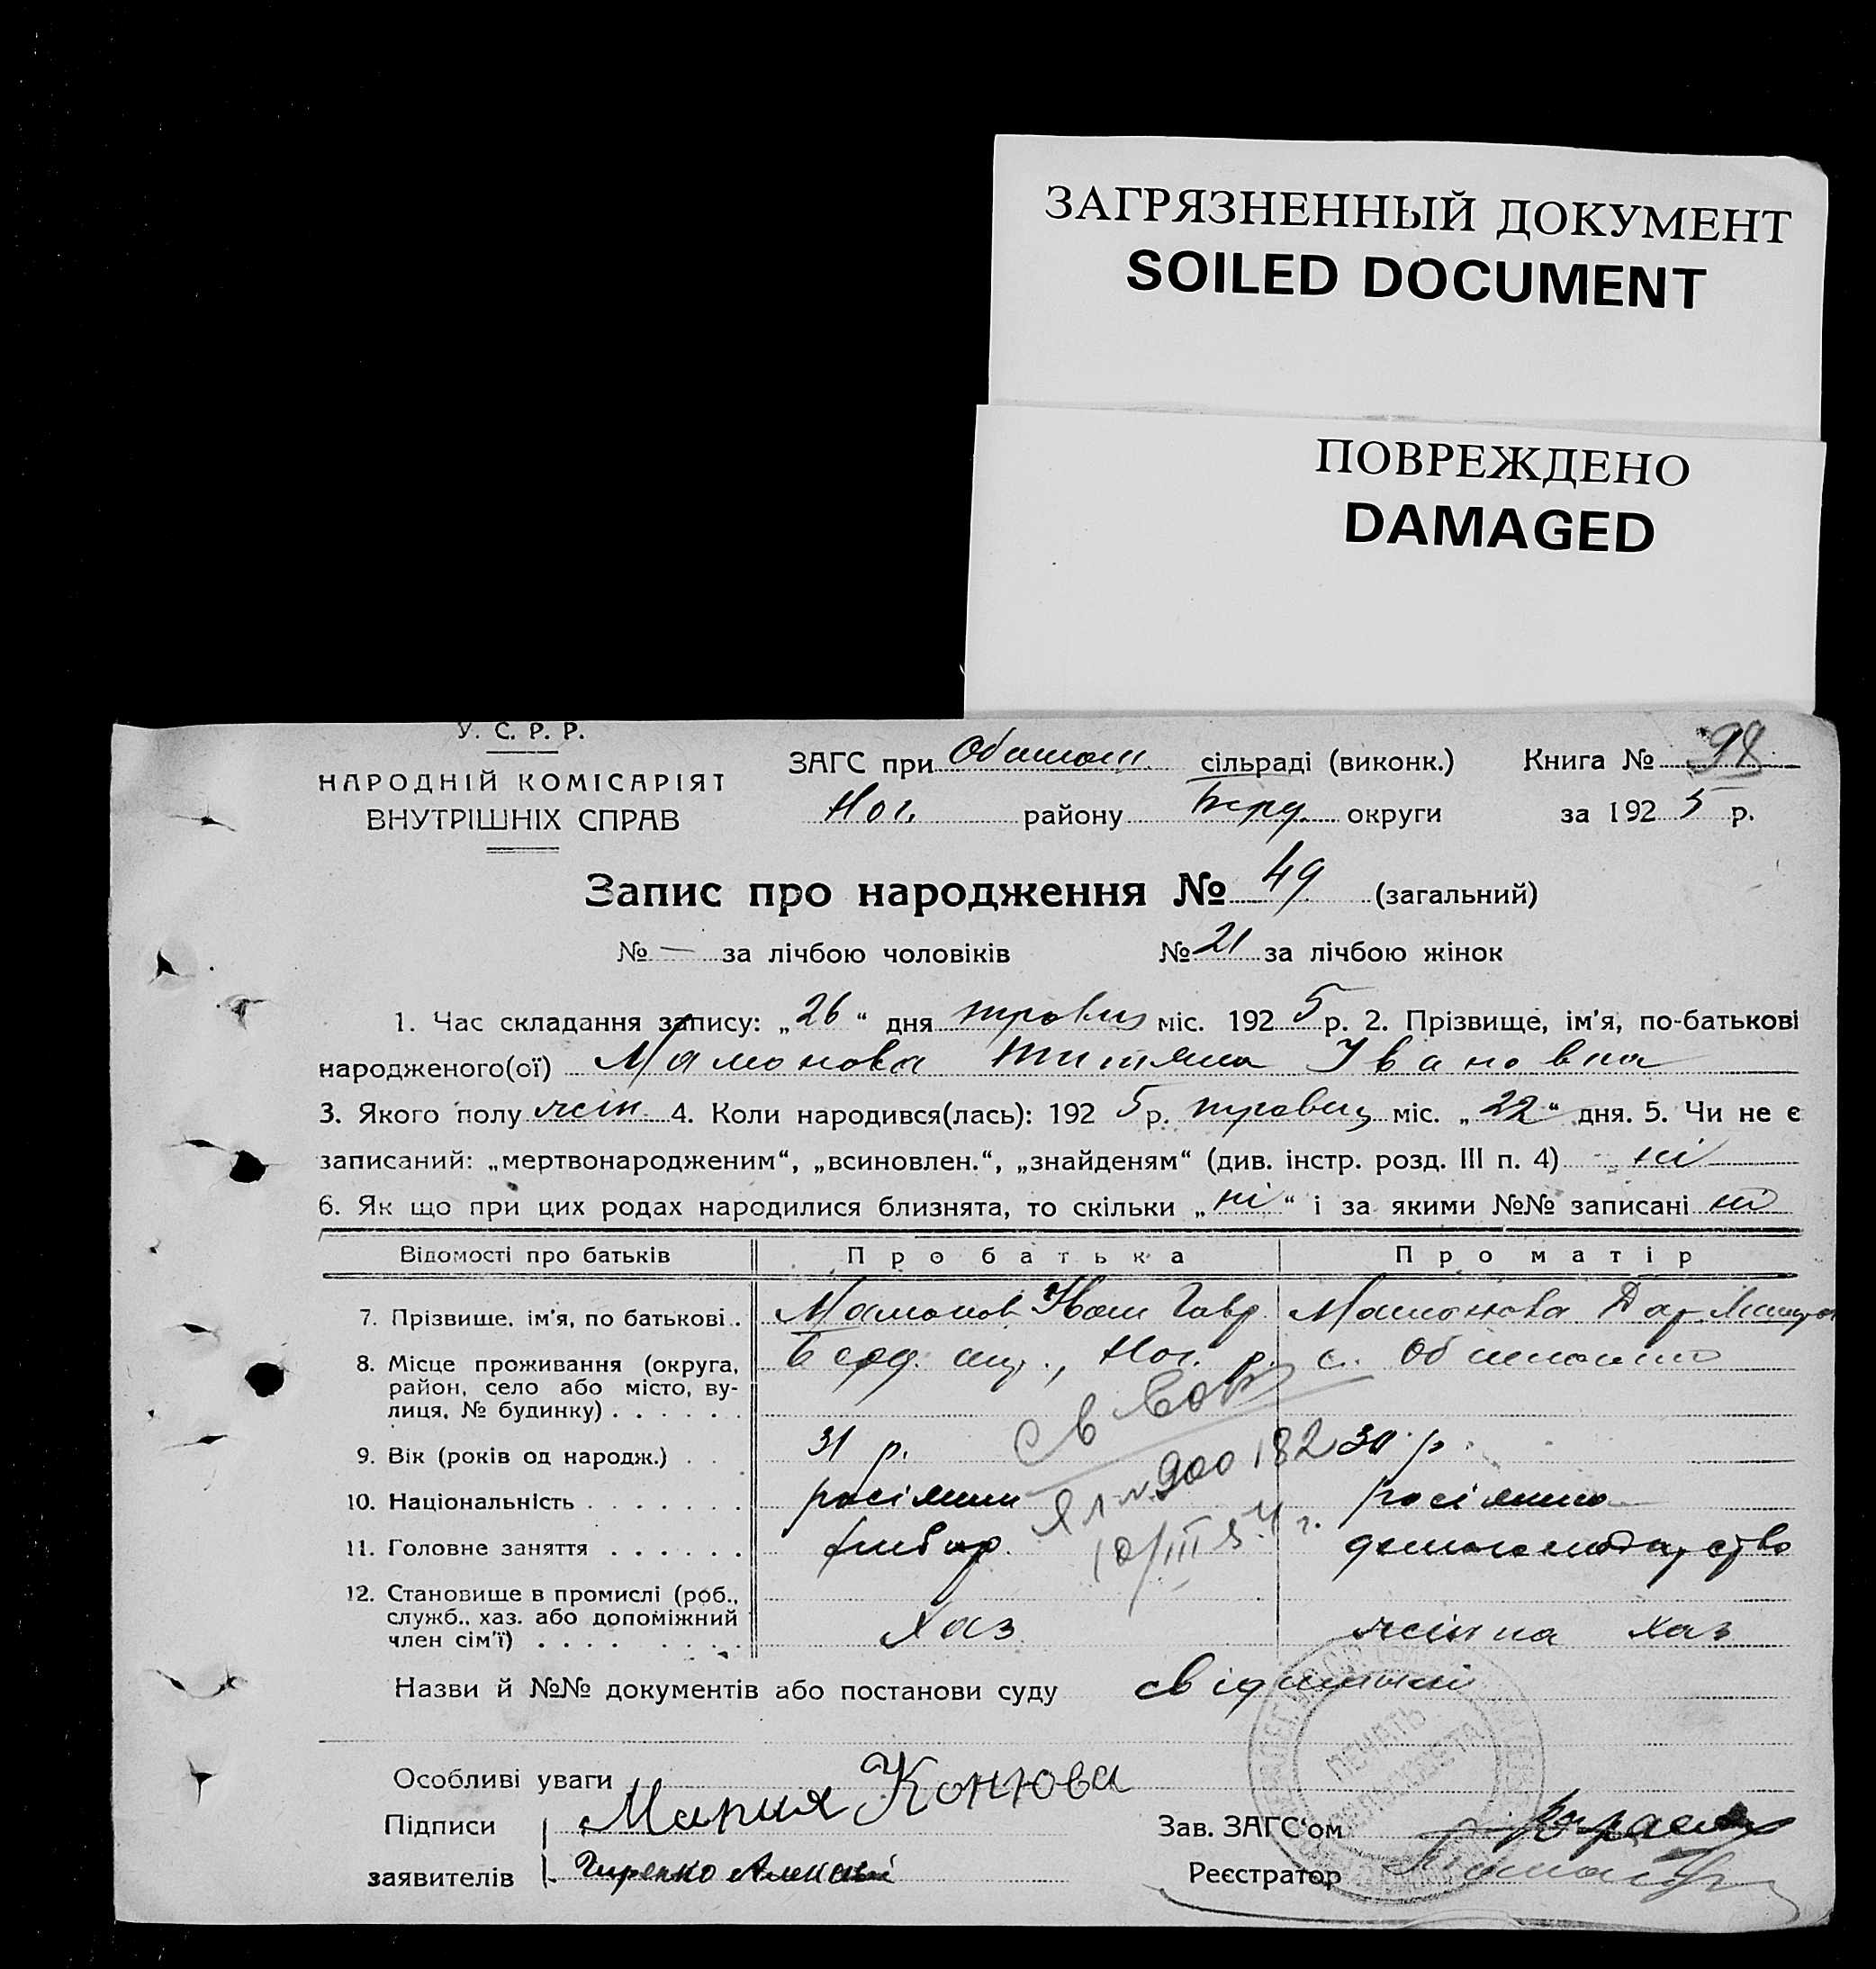 ЗАГРЯЗНЕННЫЙ ДОКУМЕНТ
SOILED DOCUMENT
ПОВРЕЖДЕНО
DAMAGED
У. С. Р. Р.
НАРОДНІЙ КОМІСАРІЯТ
ВНУТРІШНІХ СПРАВ
ЗАГС при сільраді (виконк.) Книга № 98
Ног. району Берд. округи за 1925 р.
Запис про народження № 49 (загальний)
№ — за лічбою чоловіків № 21 за лічбою жінок
1. Час складання запису: „26“ дня травня міс. 1925 р. 2. Прізвище, ім’я, по-батькові
народженого(ої) Мамонова Титяна Івановна
3. Якого полу жін 4. Коли народився(лась): 1925 р. травня міс. „22“ дня. 5. Чи не є
записаний: „мертвонародженим“, „всиновлен.“, „знайденям“ (див. інстр. розд. III п. 4) ні
6. Як що при цих родах народилися близнята, то скільки „ні“ і за якими №№ записані ні
Відомості про батьків Про батька Про матір
7. Прізвище, ім’я, по батькові. Мамонов Іван Гавр. Мамонова Дар.
8. Місце проживання (округа, район, село або місто, вулиця, № будинку) Берд. окр., Ног. р. с.
9. Вік (років од народж.) 31 р. 30 р.
10. Національність росіянин росіянка
11. Головне заняття хлібор. домогосподарство
12. Становище в промислі (роб., служб., хаз. або допоміжний член сім’ї) хаз жінка хаз
10/III 54 г.
Назви й №№ документів або постанови суду
Особливі уваги
Підписи Мария Конюва
заявителів
Зав. ЗАГС’ом
Реєстратор
ПЕЧАТЬ
СЕЛЬСОВЕТА